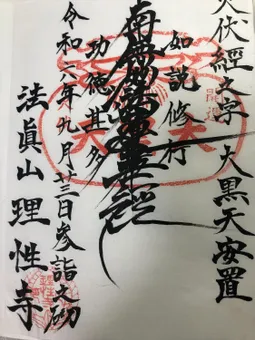 火伏經文字 大黒天安置
如説修行
南無妙法蓮華経
功徳甚多
令和六年九月廿三日参詣之砌
法眞山 理性寺
開運